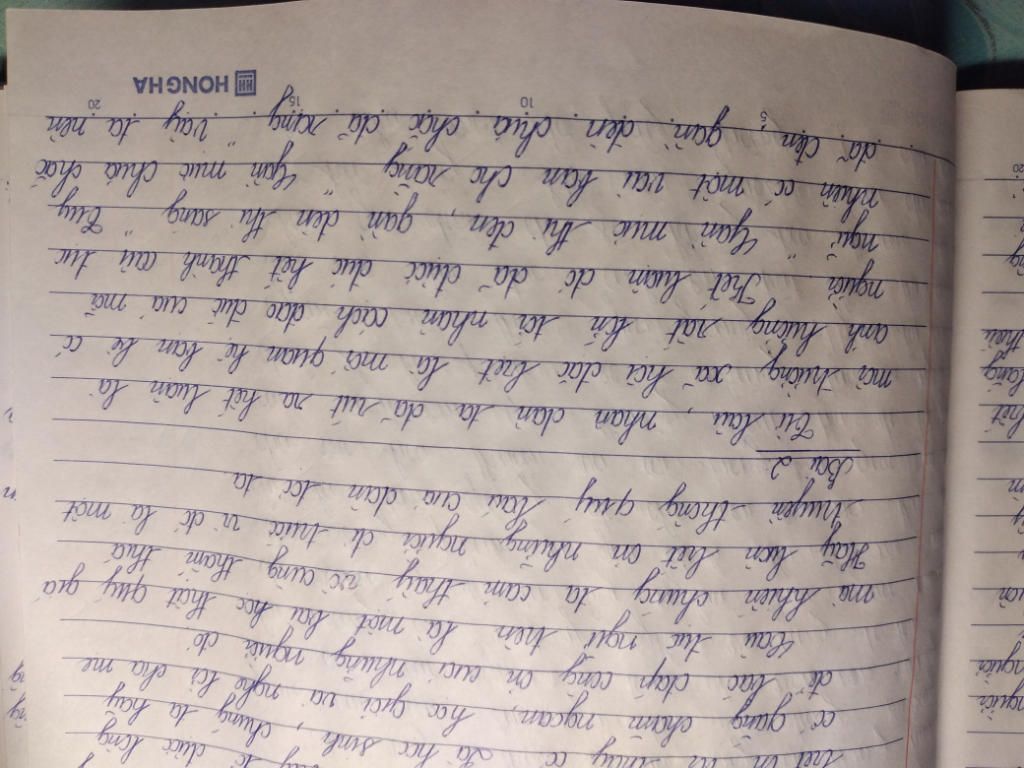 đức lòng
biết ơn thầy cô. Là học sinh, chúng ta hãy
cố gắng chăm ngoan, học giỏi và nghe lời cha mẹ
để báo đáp công ơn của những người đó
Câu tục ngữ trên là một bài học thật quý giá
mà khiến chúng ta cảm thấy vô cùng thấm thía
Hãy luôn biết ơn những người đi trước vì đó là một
truyền thống quý báu của dân tộc ta
Bài 2
Từ lâu, nhân dân ta đã rút ra kết luận là
môi trường xã hội đặc biệt là mối quan hệ bạn bè có
ảnh hưởng rất lớn tới nhân cách đạo đức của mỗi
người. Kết luận đó đã được đúc kết thành câu tục
ngữ "Gần mực thì đen, gần đèn thì sáng" Tuy
nhiên có một vài bạn cho rằng "Gần mực chưa chắc
đã đen, gần đèn chưa chắc đã rạng". Vậy ta nên
5 10 15 20
HONG HA